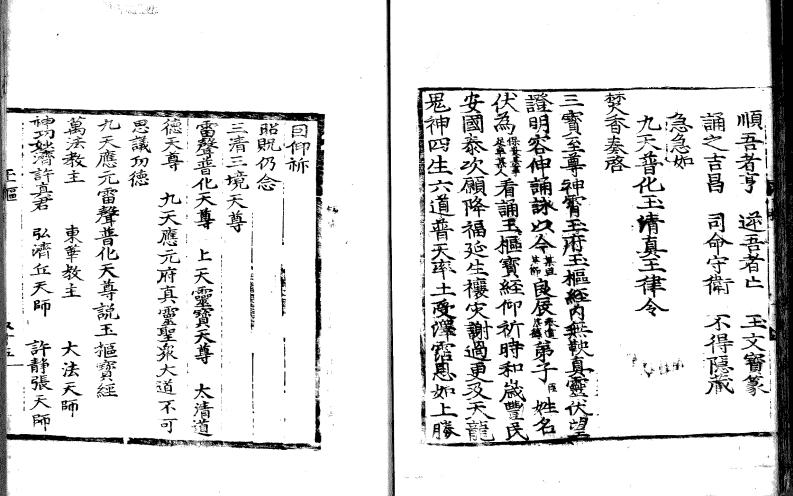 順吾者亨 逆吾者亡 玉文寶篆
誦之吉昌 司命守衛 不得隱藏
急急如
九天普化玉清真王律令
焚香奏啓
三寶至尊神霄玉府玉樞經內無鞅真靈伏望
證明容伸誦詠以今良展弟子臣姓名
伏為看誦玉樞寶經仰祈時和歲豐民
安國泰次願降福延生禳灾謝過更及天龍
鬼神四生六道普天率土受澤霑恩如上勝
因仰祈
昭貺仍念
三清三境天尊
雷聲普化天尊 上天靈寶天尊 太清道
德天尊 九天應元府真靈聖衆大道不可
思議功德
九天應元雷聲普化天尊說玉樞寶經
萬法教主 東華教主 大法天師
神功妙濟許真君 弘濟丘天師 許靜張天師
玉樞